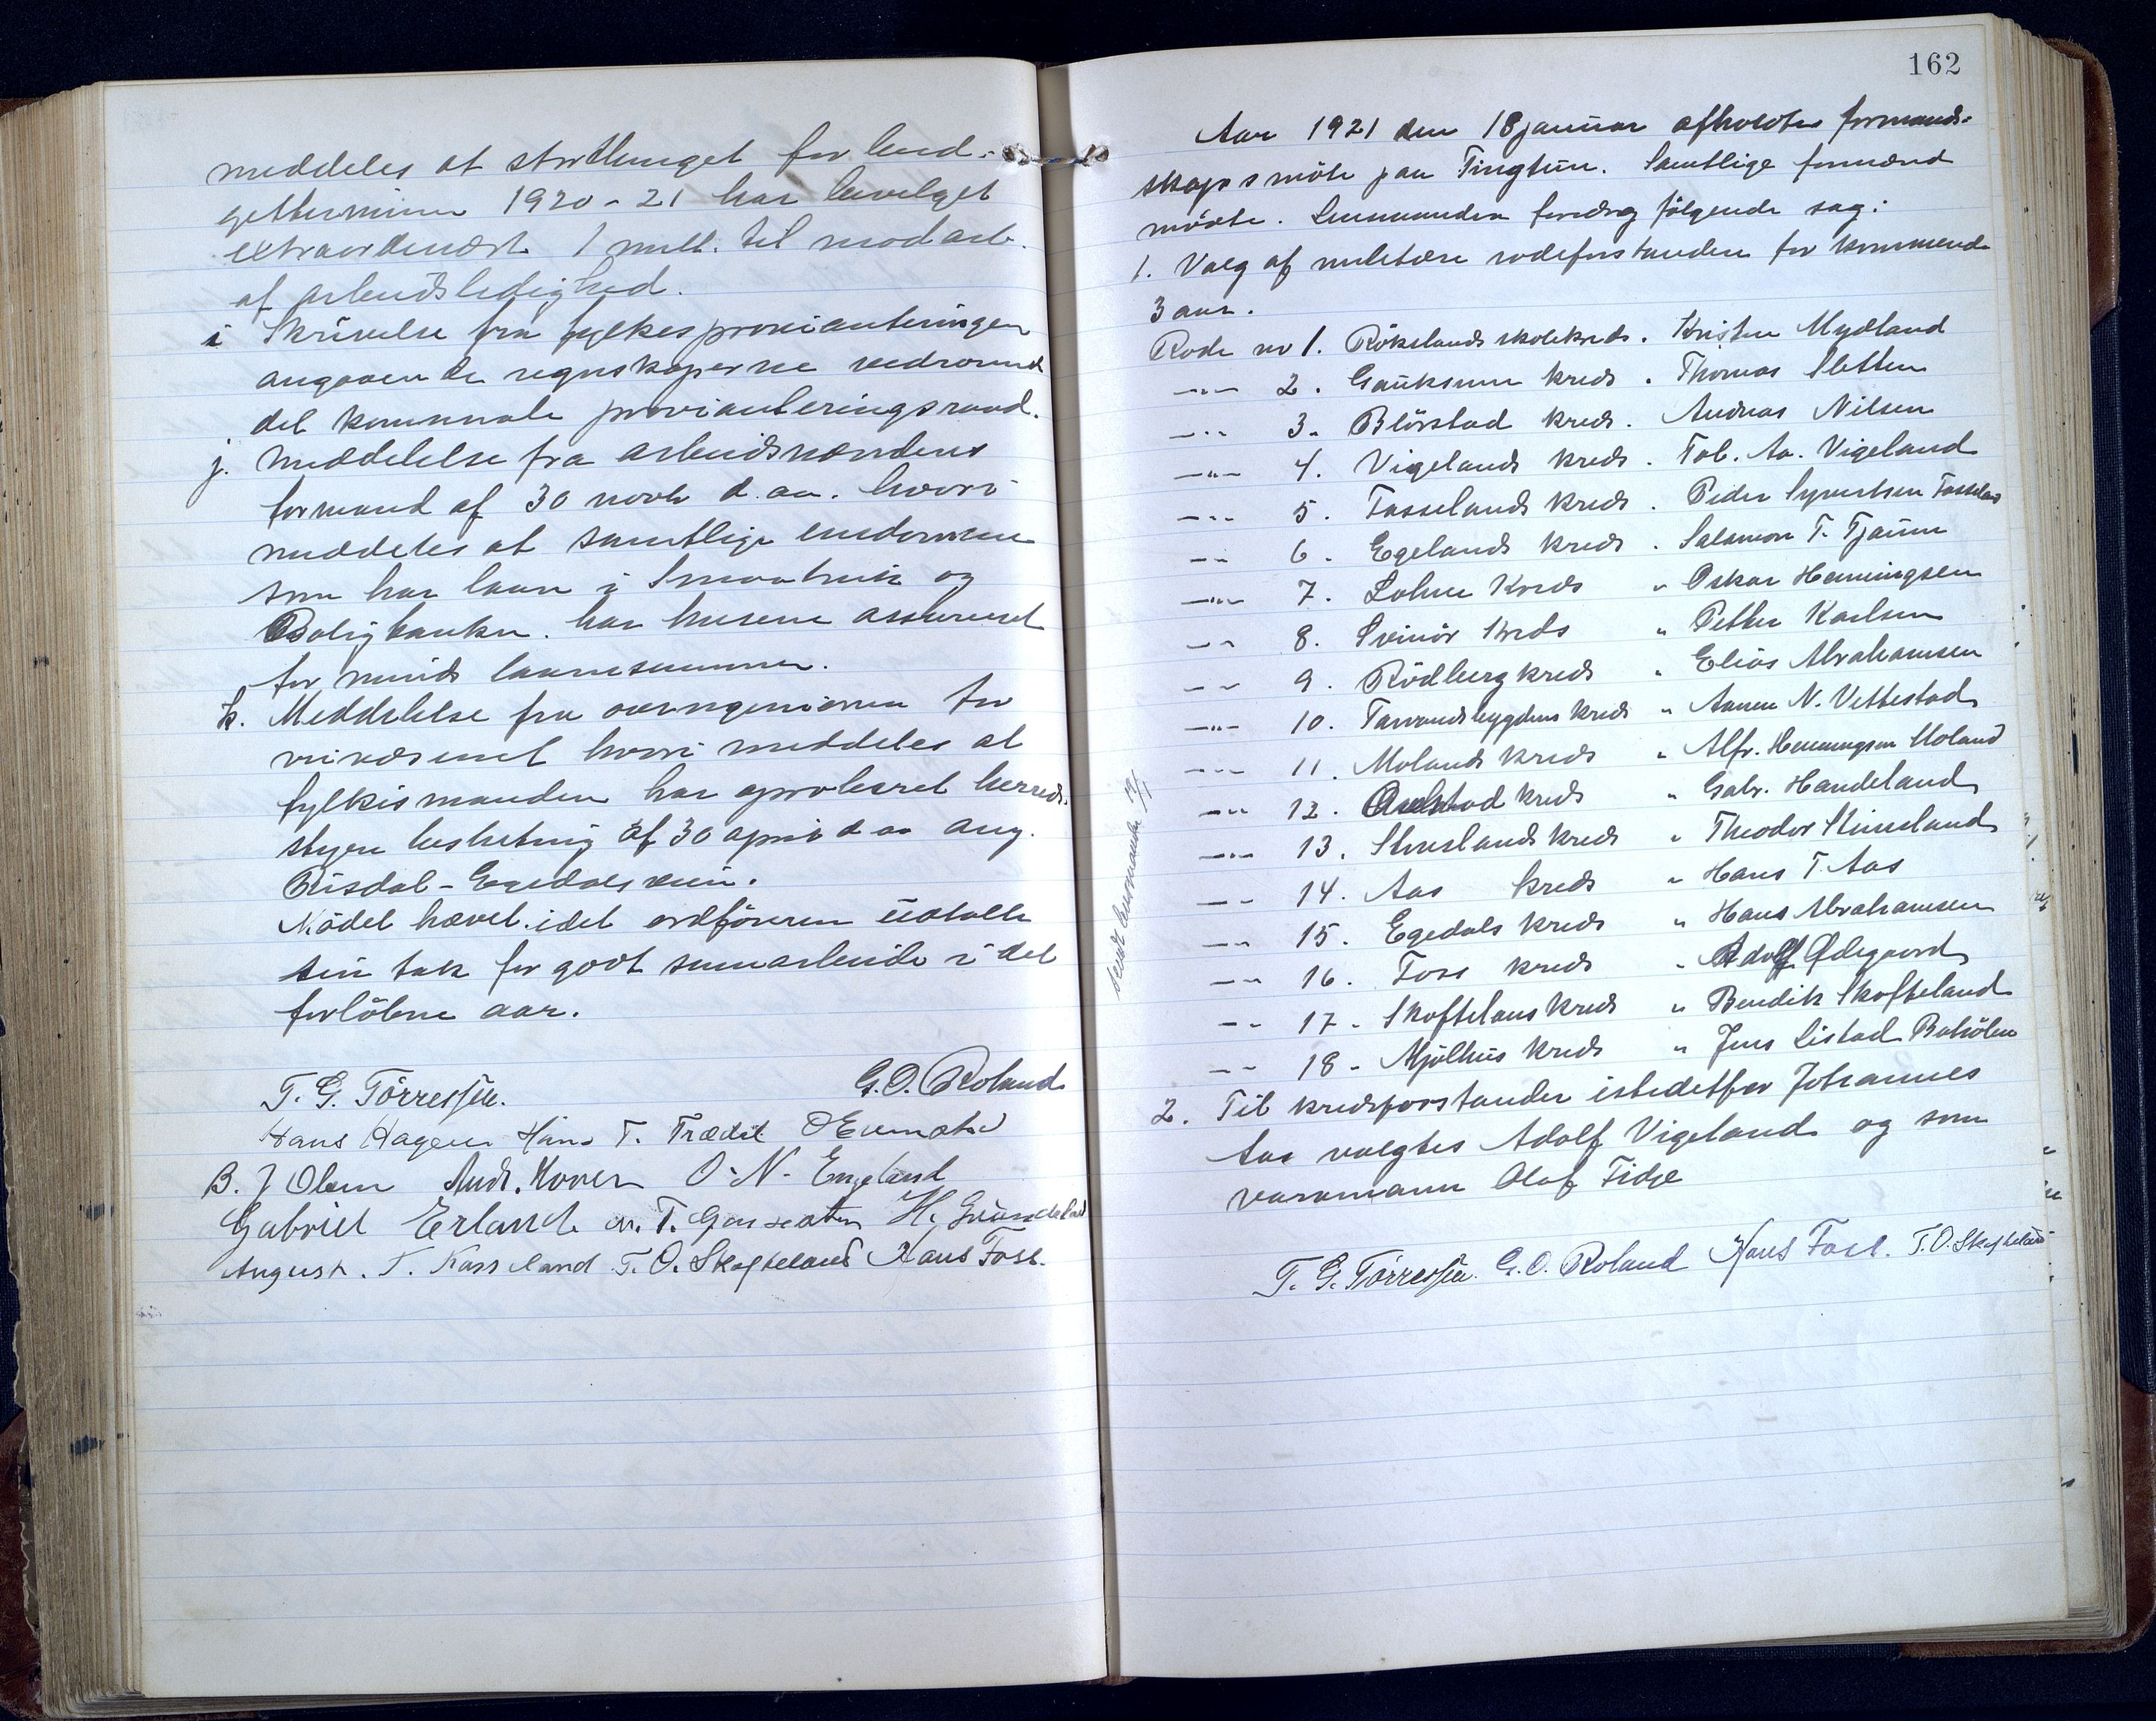 meddeles at storthinget for bud-
gettermin 1920-21 har bevilget
extraordinært 1 mill. til modarb.
af arbeidsledighed.
i Skrivelse fra fylkesprovianteringen
angaaende regnskaperne vedrørend
det komunale provianteringsraad.
j. Meddelelse fra arbeidsnævndens
formand af 30 novb d. aa. hvori
meddeles at samtlige eiendomme
som har laan i Smaabruk og
Boligbanken har husene assureret
for minds laanesummen.
k. Meddelelse fra overingeniøren for
veivæsenet hvori meddeles at
fylkesmanden har aprobert herreds-
styre beslutning af 30 april d aa ang.
Risdal - Egedals vei.
Mødet hævet idet ordføreren udtalte
sin tak for godt samarbeide i det
forløbne aar.
T. G. Tørressen. G. O. Roland
Hans Hagen Hans T. Trædal
B. J Olsen Andr. Hoven O. N. Engeland
Gabriel Erland
August. T. Kassland T. O. Skofteland Hans Foss.
162
Aar 1921 den 18 januar afholdtes formand-
skaps møte paa Tingtun. Samtlige formænd
møtte. Lensmanden foredrog følgende sag:
1. Valg af militære rodeforstandere for kommende
3 aar.
Rode no 1. Røkslands skolekreds. Kristen Mydland
—"— 2. Gauksum kreds. Thomas Sletten
—"— 3. Blørstad kreds. Andreas Nilsen
—"— 4. Vigelands kreds. Tob. Aa. Vigeland
—"— 5. Tosselands kreds. Peder Syvertsen Tosseland
—"— 6. Egelands kreds. Salamon T. Tjaum
—"— 7. Lohne Kreds " Oskar Henningsen
—"— 8. Svinør kreds " Petter Karlsen
—"— 9. Rødberg kreds " Elias Abrahamsen
—"— 10. Tarvandsbygdens kreds " Aanen N. Vettestad
—"— 11. Molands kreds " Alfr. Henningsen Moland
—"— 12. kreds " Gabr. Handeland
—"— 13. Stuslands kreds " Theodor
—"— 14. Aas kreds " Hans T. Aas
—"— 15. Egedals kreds " Hans Abrahamsen
—"— 16. Foss kreds " Adolf Ødegaard
—"— 17. Skoftelans kreds " Bendik Skofteland
—"— 18. Mjølhus kreds " Jens Listad Boholen
sendt lensmanden
2. Til kredsforstander istedetfor Johannes
Aas valgtes Adolf Vigeland og som
varamann Olaf Fidje
T. G. Tørressen. G. O. Roland Hans Foss. T. O. Skofteland